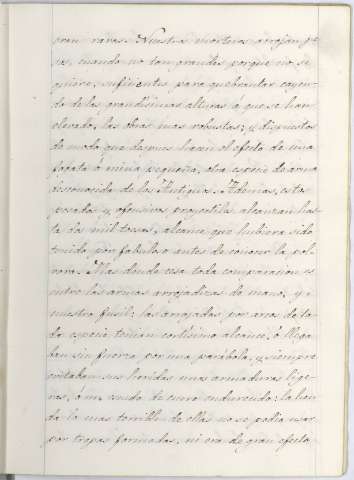 eran raras. Nuestros morteros arrojan pe-
sos, cuando no tan grandes porque no se
quiere, suficientes para quebrantar cayen-
do de las grandisimas alturas á que se han
elevado, las obras mas robustas; y dispuestos
de modo que despues hacen el efecto de una
fogata ó mina pequeña, otra especie de arma
desconocida de los Antiguos. Ademas, estos
pesados y ofensivos proyectiles alcanzan has-
ta dos mil toesas, alcance que hubiera sido
tenido por fabuloso antes de conocer la pól-
vora. Mas donde cesa toda comparacion es
entre las armas arrojadizas de mano, y
nuestro fusil: las arrojadas por arcos de to-
da especie tenian cortísimo alcance, ó llega-
ban sin fuerza por una parábola, y siempre
evitaban sus heridas unas armaduras lige-
ras, ó un escudo de cuero endurecido: la hon-
da lo mas terrible de ellas no se podia usar
por tropas formadas, ni era de gran efecto